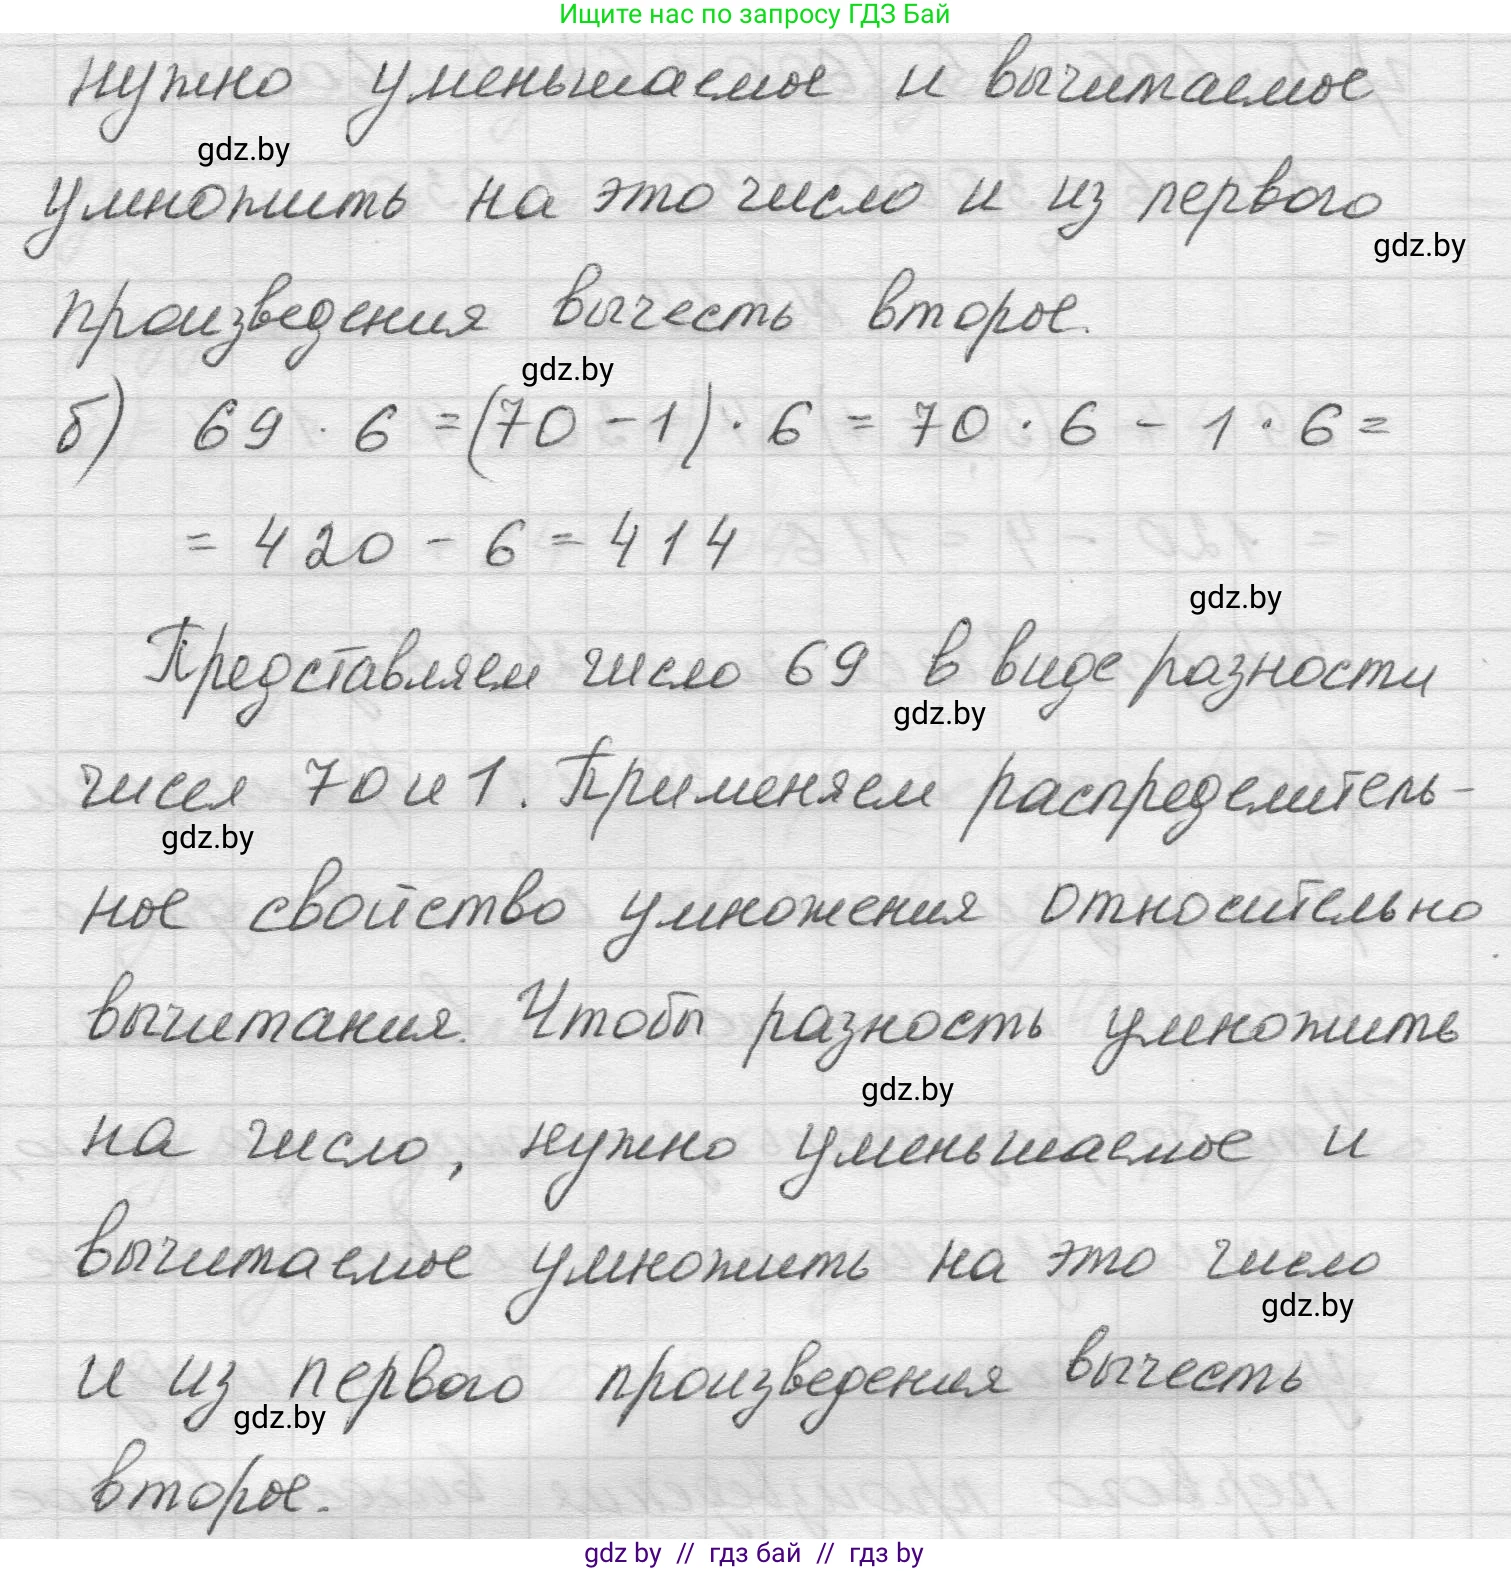 Ищите нас по запросу ГДЗ Бай
нужно уменьшаемое и вычитаемое
gdz.by
умножить на это число и из первого
gdz.by
произведения вычесть второе.
gdz.by
б) 69 · 6 = (70 - 1) · 6 = 70 · 6 - 1 · 6 =
= 420 - 6 = 414
gdz.by
Представляем число 69 в виде разности
gdz.by
чисел 70 и 1. Применяем распределитель-
gdz.by
ное свойство умножения относительно
вычитания. Чтобы разность умножить
gdz.by
на число, нужно уменьшаемое и
вычитаемое умножить на это число
gdz.by
и из первого произведения вычесть
gdz.by
второе.
gdz by // гдз бай // гдз by